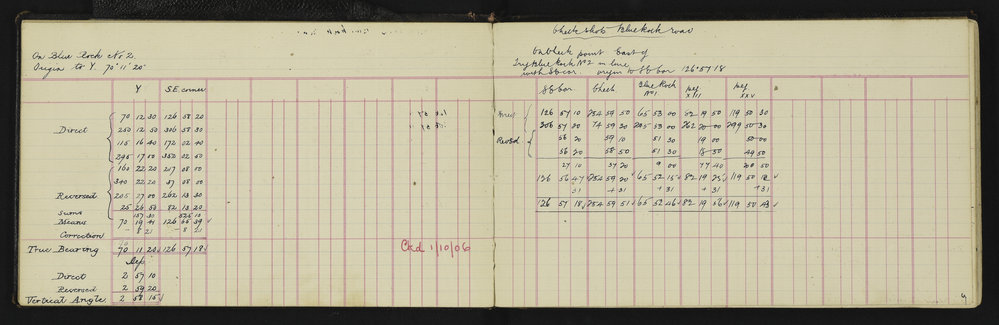 On Blue Rock No 2.
Origin to Y. 70° 11' 20"
Y S.E. corner
70 12 30 126 58 20
Direct 250 12 50 306 58 30
115 16 40 172 02 40
295 17 00 352 02 50
160 22 20 217 08 00
340 22 20 37 08 00
Reversed 205 27 00 262 13 30
25 26 50 82 13 20
Sums 157 30 525 10
Means 70 19 41 126 65 39
Correction - 8 21 - 8 21
True Bearing 70 11 20 126 57 18
Dep
Direct 2 57 10
Reversed 2 59 20
Vertical Angle 2 58 15
Ckd 1/10/06
Check Shots Blue Rock road
On Check point East of
Trig Blue Rock No 2 in line
with SE cor origin to SE cor 126° 57' 18
SE cor Check Blue Rock No 1 peg XIII peg XXV
Direct 126 57 10 254 59 50 65 53 00 82 19 50 119 50 30
306 57 20 74 59 30 245 53 00 262 20 00 299 50 30
Reversed 56 20 59 10 51 30 19 00 50 00
56 20 58 50 51 30 18 50 49 50
27 10 37 20 9 00 77 40 200 50
126 56 47 254 59 20 65 52 15 82 19 25 119 50 12
31 + 31 + 31 + 31 + 31
126 57 18 254 59 51 65 52 46 82 19 56 119 50 43
9